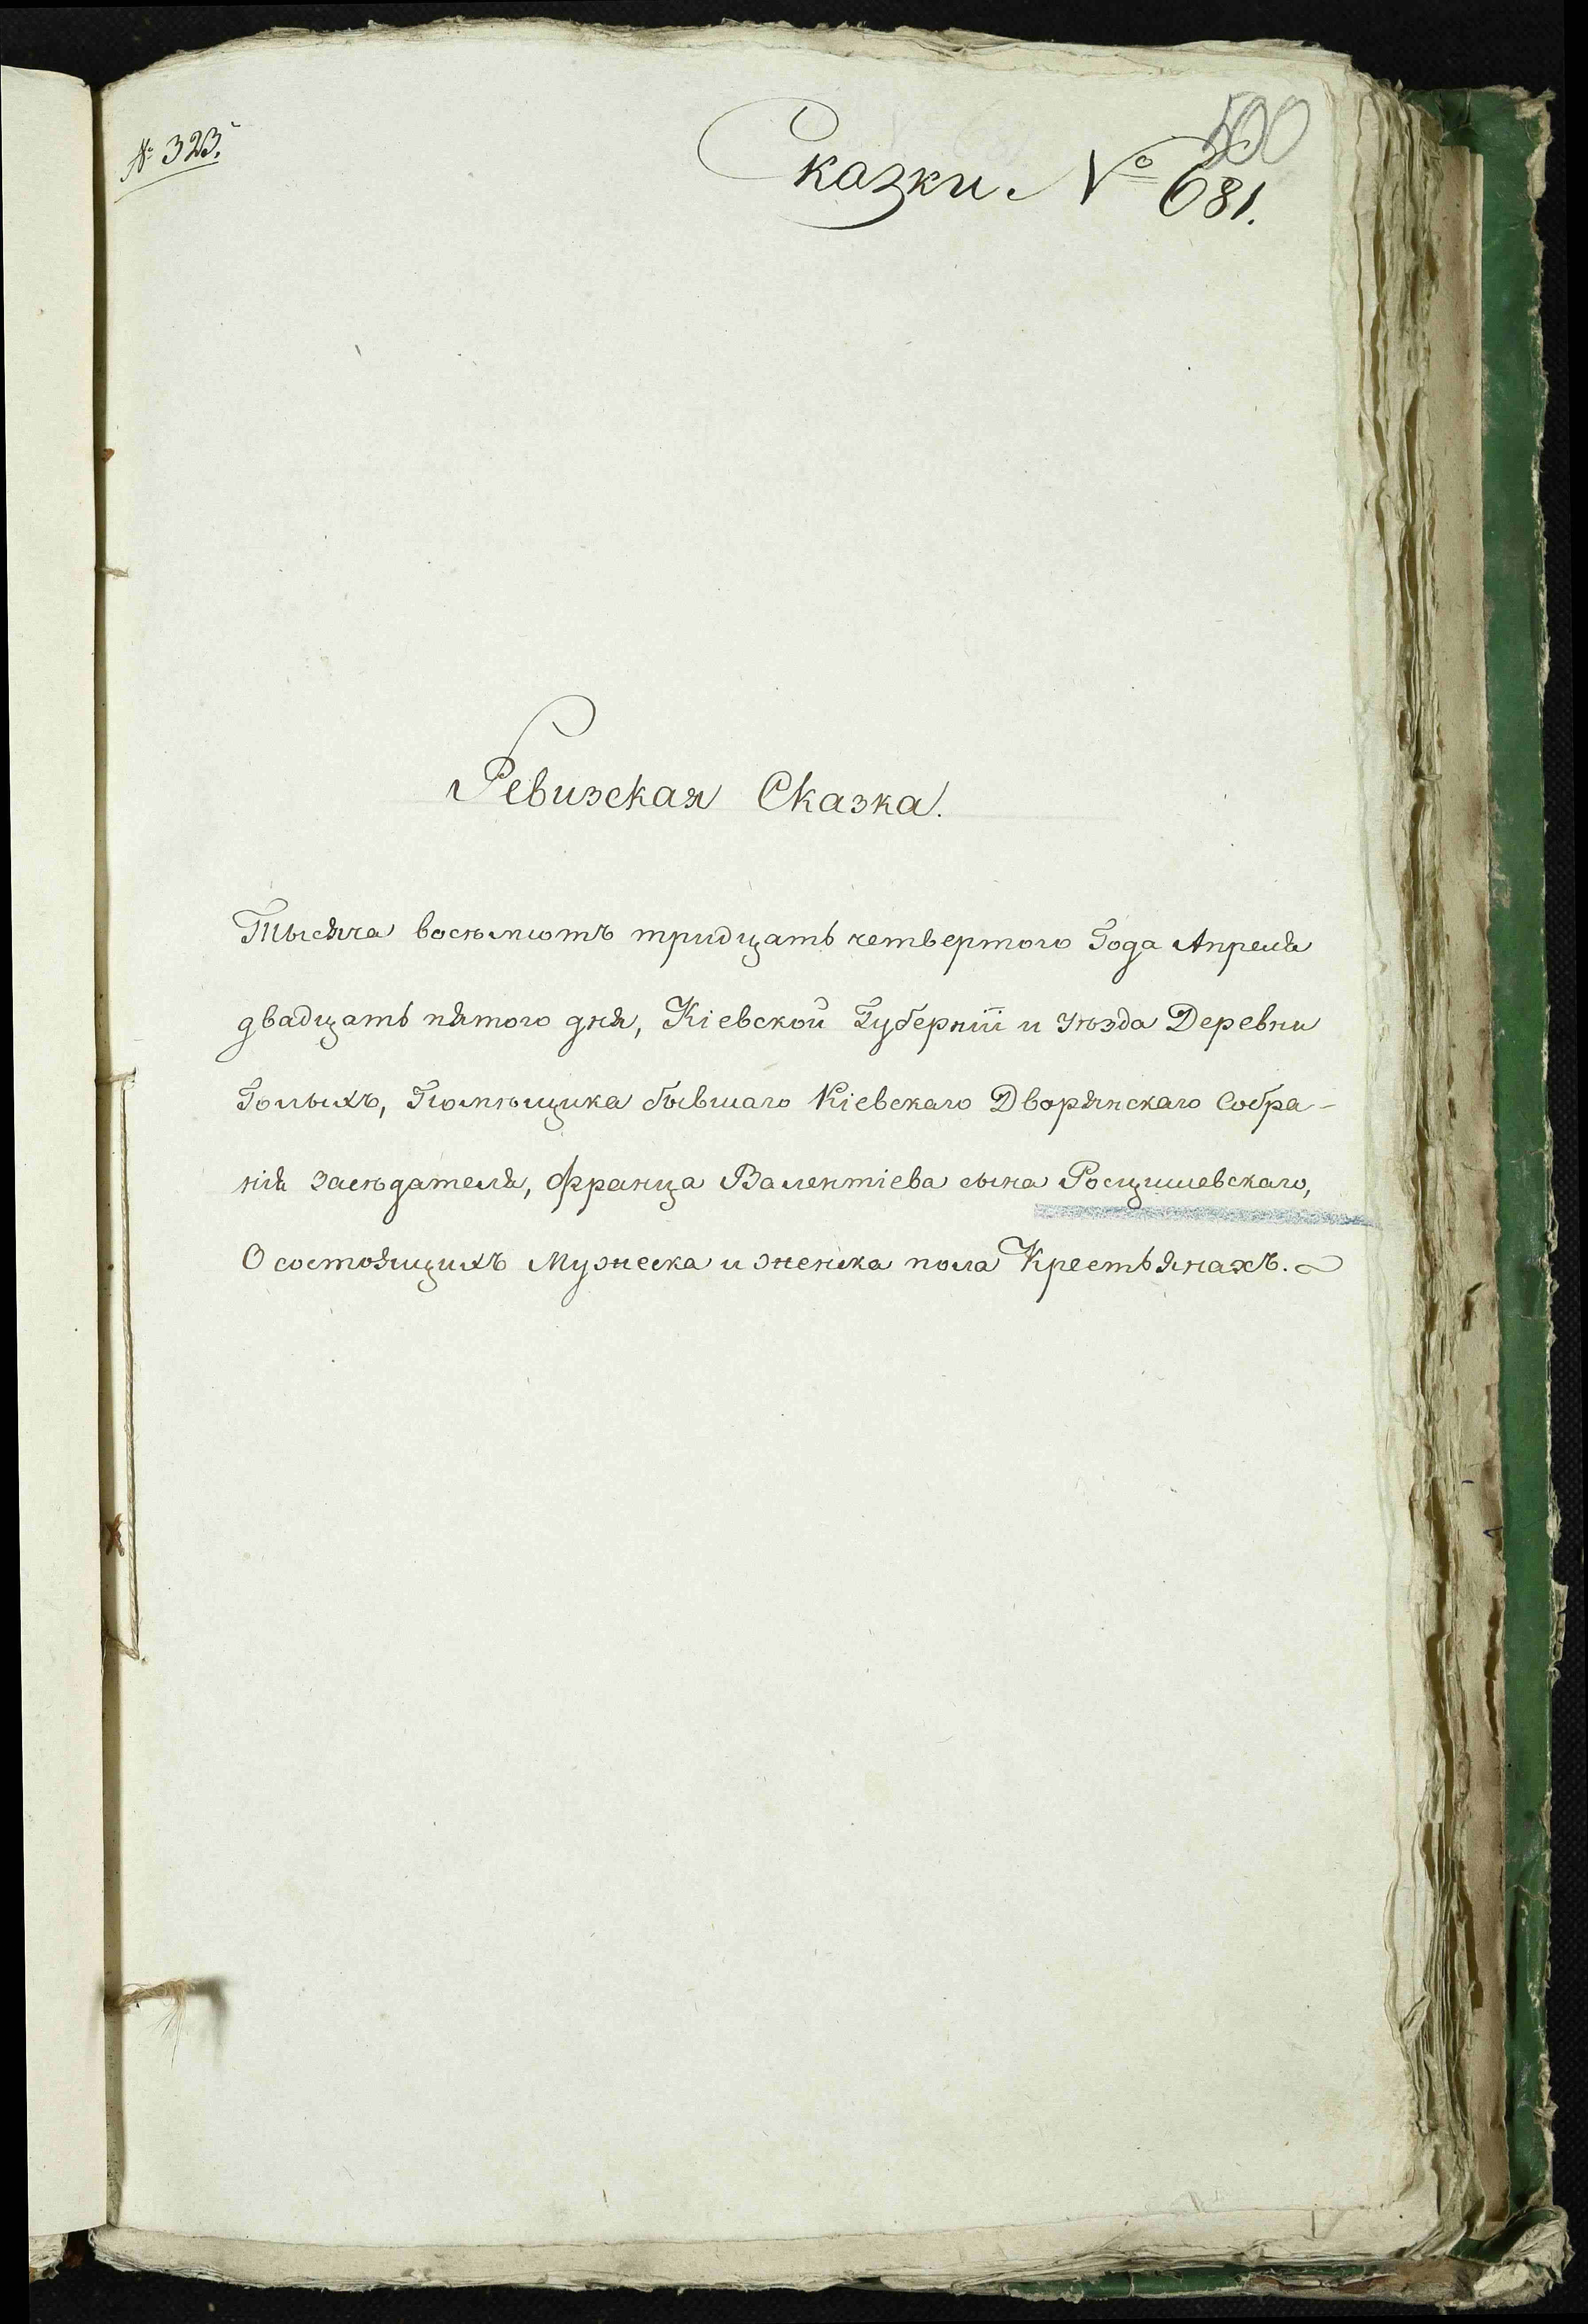 № 323.
500
Сказки № 681.
Ревизская Сказка.
Тысяча восѣмсотъ тридцать четвертого Года Апреля
двадцать пятого дня, Кіевской Губерніи и уѣзда Деревни
Голыхъ, Помѣщика бывшаго Кіевскаго Дворянскаго Собра-
нія засѣдателя, Франца Валентіева сына Росцишевскаго,
О состоящихъ Мужеска и женска пола Крестьянахъ.